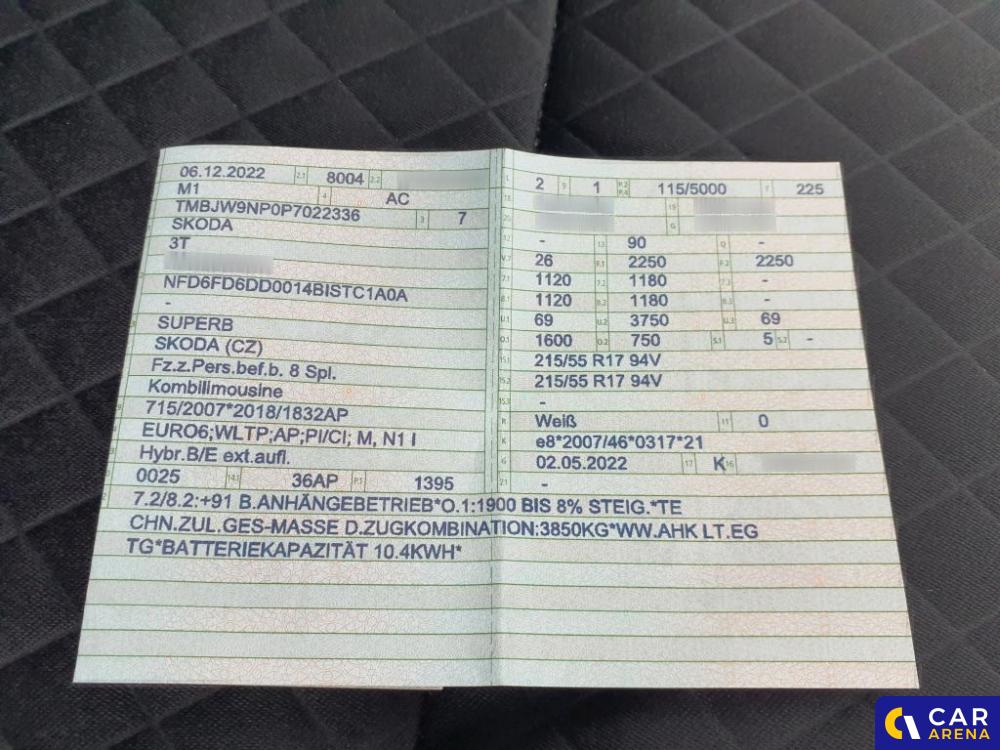 06.12.2022 2.1 8004 2.2
M1 4 AC
TMBJW9NP0P7022336 3 7
SKODA
3T
NFD6FD6DD0014BISTC1A0A
-
SUPERB
SKODA (CZ)
Fz.z.Pers.bef.b. 8 Spl.
Kombilimousine
715/2007*2018/1832AP
EURO6;WLTP;AP;PI/CI; M, N1 I
Hybr.B/E ext.aufl.
0025 14.1 36AP P.1 1395
L 2 9 1 P.2 P.4 115/5000 T 225
18 19
20 G
12 - 13 90 Q -
V.7 26 F.1 2250 F.2 2250
7.1 1120 7.2 1180 7.3 -
8.1 1120 8.2 1180 8.3 -
U.1 69 U.2 3750 U.3 69
O.1 1600 O.2 750 S.1 5 S.2 -
15.1 215/55 R17 94V
15.2 215/55 R17 94V
15.3 -
R Weiß 11 0
K e8*2007/46*0317*21
6 02.05.2022 17 K 16
21 -
7.2/8.2:+91 B.ANHÄNGEBETRIEB*O.1:1900 BIS 8% STEIG.*TE
CHN.ZUL.GES-MASSE D.ZUGKOMBINATION:3850KG*WW.AHK LT.EG
TG*BATTERIEKAPAZITÄT 10.4KWH*
CAR
ARENA